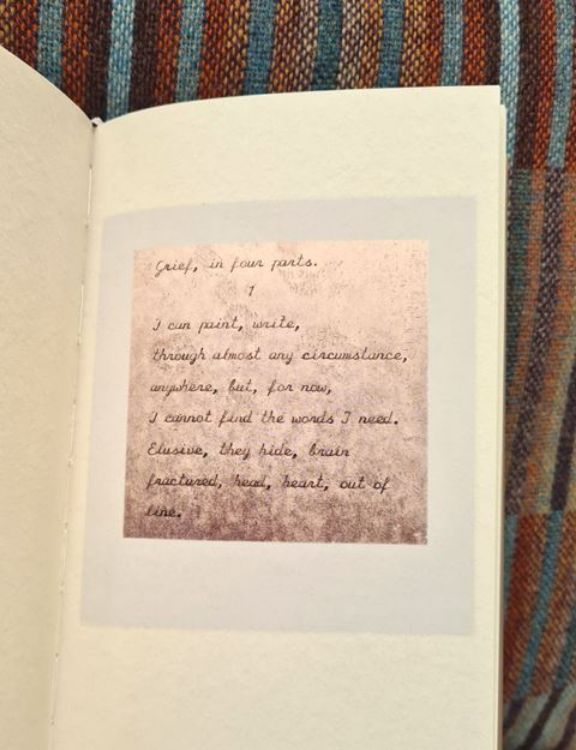 Grief, in four parts.
1
I can paint, write,
through almost any circumstance,
anywhere, but, for now,
I cannot find the words I need.
Elusive, they hide, brain
fractured, head, heart, out of
line.